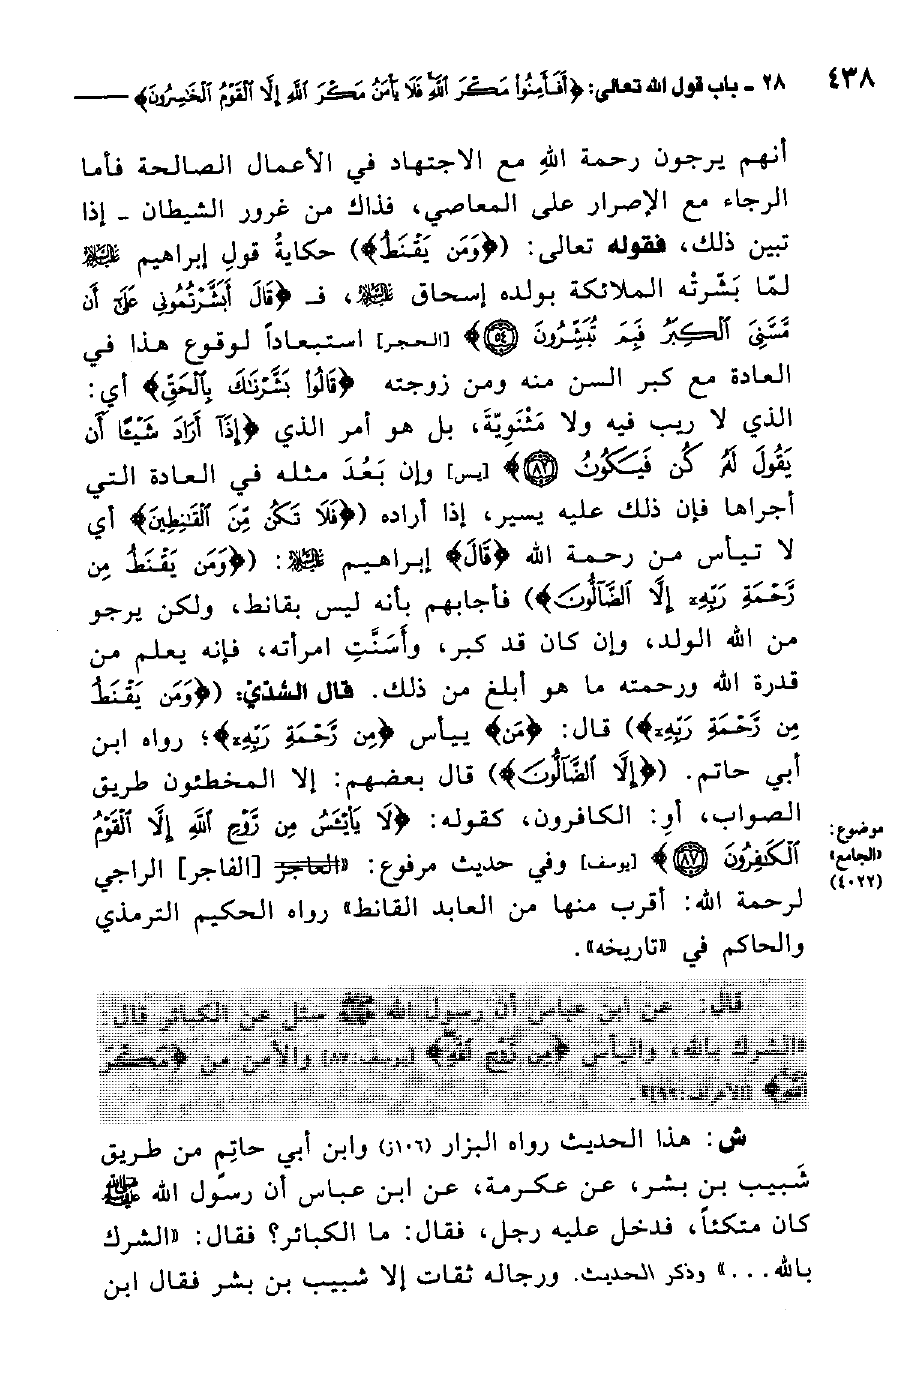 ٤٣٨
٢٨ - باب قول الله تعالى: ﴿أَفَأَمِنُوا۟ مَكْرَ ٱللَّهِ فَلَا يَأْمَنُ مَكْرَ ٱللَّهِ إِلَّا ٱلْقَوْمُ ٱلْخَٰسِرُونَ﴾
أنهم يرجون رحمة اللهِ مع الاجتهاد في الأعمال الصالحة فأما
الرجاء مع الإصرار على المعاصي، فذاك من غرور الشيطان - إذا
تبين ذلك، فقوله تعالى: (﴿وَمَن يَقْنَطُ﴾) حكايةُ قولِ إبراهيم عليه السلام
لمّا بَشّرتْه الملائكة بولده إسحاق عليه السلام، فـ ﴿قَالَ أَبَشَّرْتُمُونِى عَلَىٰٓ أَن
مَّسَّنِىَ ٱلْكِبَرُ فَبِمَ تُبَشِّرُونَ ٥٤﴾ [الحجر] استبعاداً لوقوع هذا في
العادة مع كبر السن منه ومن زوجته ﴿قَالُوا۟ بَشَّرْنَٰكَ بِٱلْحَقِّ﴾ أي:
الذي لا ريب فيه ولا مَثْنَوِيّةَ، بل هو أمر الذي ﴿إِذَآ أَرَادَ شَيْـًٔا أَن
يَقُولَ لَهُۥ كُن فَيَكُونُ ٨٢﴾ [يس] وإن بَعُدَ مثله في العادة التي
أجراها فإن ذلك عليه يسير، إذا أراده (﴿فَلَا تَكُن مِّنَ ٱلْقَٰنِطِينَ﴾ أي
لا تيأس من رحمة الله ﴿قَالَ﴾ إبراهيم عليه السلام: (﴿وَمَن يَقْنَطُ مِن
رَّحْمَةِ رَبِّهِۦٓ إِلَّا ٱلضَّآلُّونَ﴾) فأجابهم بأنه ليس بقانط، ولكن يرجو
من الله الولد، وإن كان قد كبر، وأَسَنَّتِ امرأته، فإنه يعلم من
قدرة الله ورحمته ما هو أبلغ من ذلك. قال السُّدّيّ: (﴿وَمَن يَقْنَطُ
مِن رَّحْمَةِ رَبِّهِۦٓ﴾) قال: ﴿مَن﴾ ييأس ﴿مِن رَّحْمَةِ رَبِّهِۦٓ﴾؛ رواه ابن
أبي حاتم. (﴿إِلَّا ٱلضَّآلُّونَ﴾) قال بعضهم: إلا المخطئون طريق
الصواب، أو: الكافرون، كقوله: ﴿لَا يَا۟يْـَٔسُ مِن رَّوْحِ ٱللَّهِ إِلَّا ٱلْقَوْمُ
ٱلْكَٰفِرُونَ ٨٧﴾ [يوسف] وفي حديث مرفوع: «العاجز [الفاجر] الراجي
لرحمة الله: أقرب منها من العابد القانط» رواه الحكيم الترمذي
والحاكم في «تاريخه».
موضوع:
«الجامع»
(٤٠٢٢)
قال: عن ابن عباس أن رسول الله ﷺ سئل عن الكبائر قال:
«الشرك بالله، واليأس ﴿مِن رَّوْحِ ٱللَّهِ﴾ [يوسف: ٨٧] والأمن من ﴿مَكْرَ
ٱللَّهِ﴾ [الأعراف: ٩٩]».
ش: هذا الحديث رواه البزار (١٠٦ز) وابن أبي حاتِم من طريق
شَبيب بن بشر، عن عكرمة، عن ابن عباس أن رسول الله ﷺ
كان متكئاً، فدخل عليه رجل، فقال: ما الكبائر؟ فقال: «الشرك
بالله...» وذكر الحديث. ورجاله ثقات إلا شبيب بن بشر فقال ابن